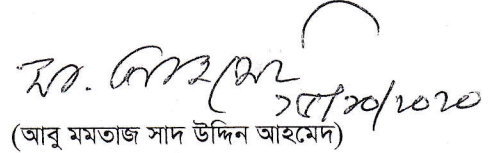 ১৫/১০/২০২০
(আবু মমতাজ সাদ উদ্দিন আহমেদ)